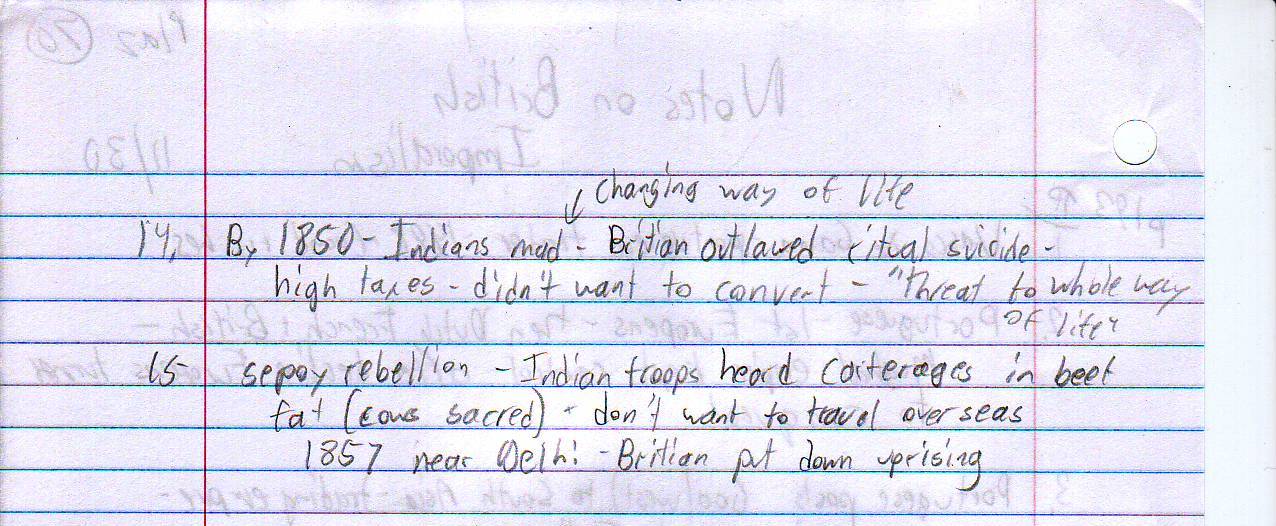 changing way of life
14, By 1850 - Indians mad - Britian outlawed ritual suicide -
high taxes - didn't want to convert - "Threat to whole way
of life"
15 sepoy rebellion - Indian troops heard carterages in beef
fat (cows sacred) + don't want to travel overseas
1857 near Delhi - Britian put down uprising
Plaz 70
Notes on British
Imperialism 11/30